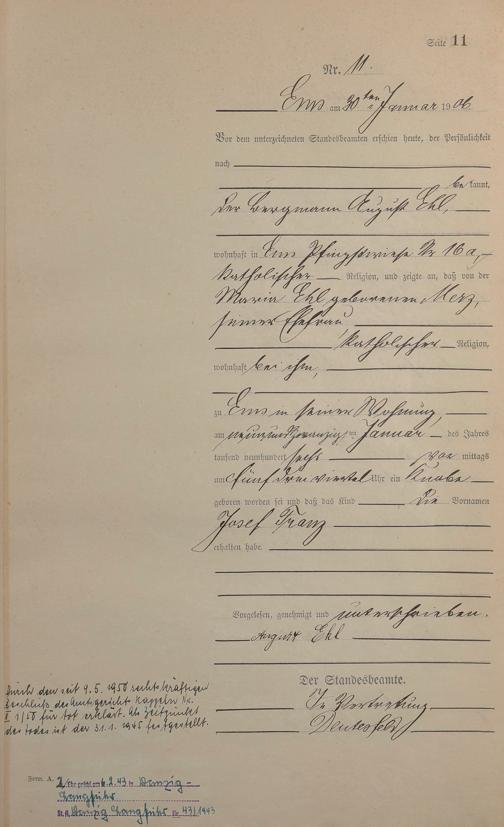 Seite 11
Nr. 11.
Ems am 30ten Januar 1906.
Vor dem unterzeichneten Standesbeamten erschien heute, der Persönlichkeit
nach
be kannt,
der Bergmann August Ehl,
wohnhaft in Ems Pfingstwiese Nr 16a,
katholischer Religion, und zeigte an, daß von der
Maria Ehl geborenen Merz,
seiner Ehefrau
katholischer Religion,
wohnhaft bei ihm,
zu Ems in seiner Wohnung,
am neunundzwanzigten Januar des Jahres
tausend neunhundert sechs vor mittags
um fünf dreiviertel Uhr ein Knabe
geboren worden sei und daß das Kind die Vornamen
Josef Franz
erhalten habe.
Vorgelesen, genehmigt und unterschrieben.
August Ehl
Der Standesbeamte.
In Vertretung
Durch den seit 9.5.1950 rechtskräftigen
Beschluß des Amtsgerichts Kappeln Nr.
II 1/50 für tot erklärt. Als Zeitpunkt
des Todes ist der 31.1.1945 festgestellt.
Form. A.
6.2.43 in Danzig-
Langfuhr
St.A. Danzig Langfuhr Nr 43/1943